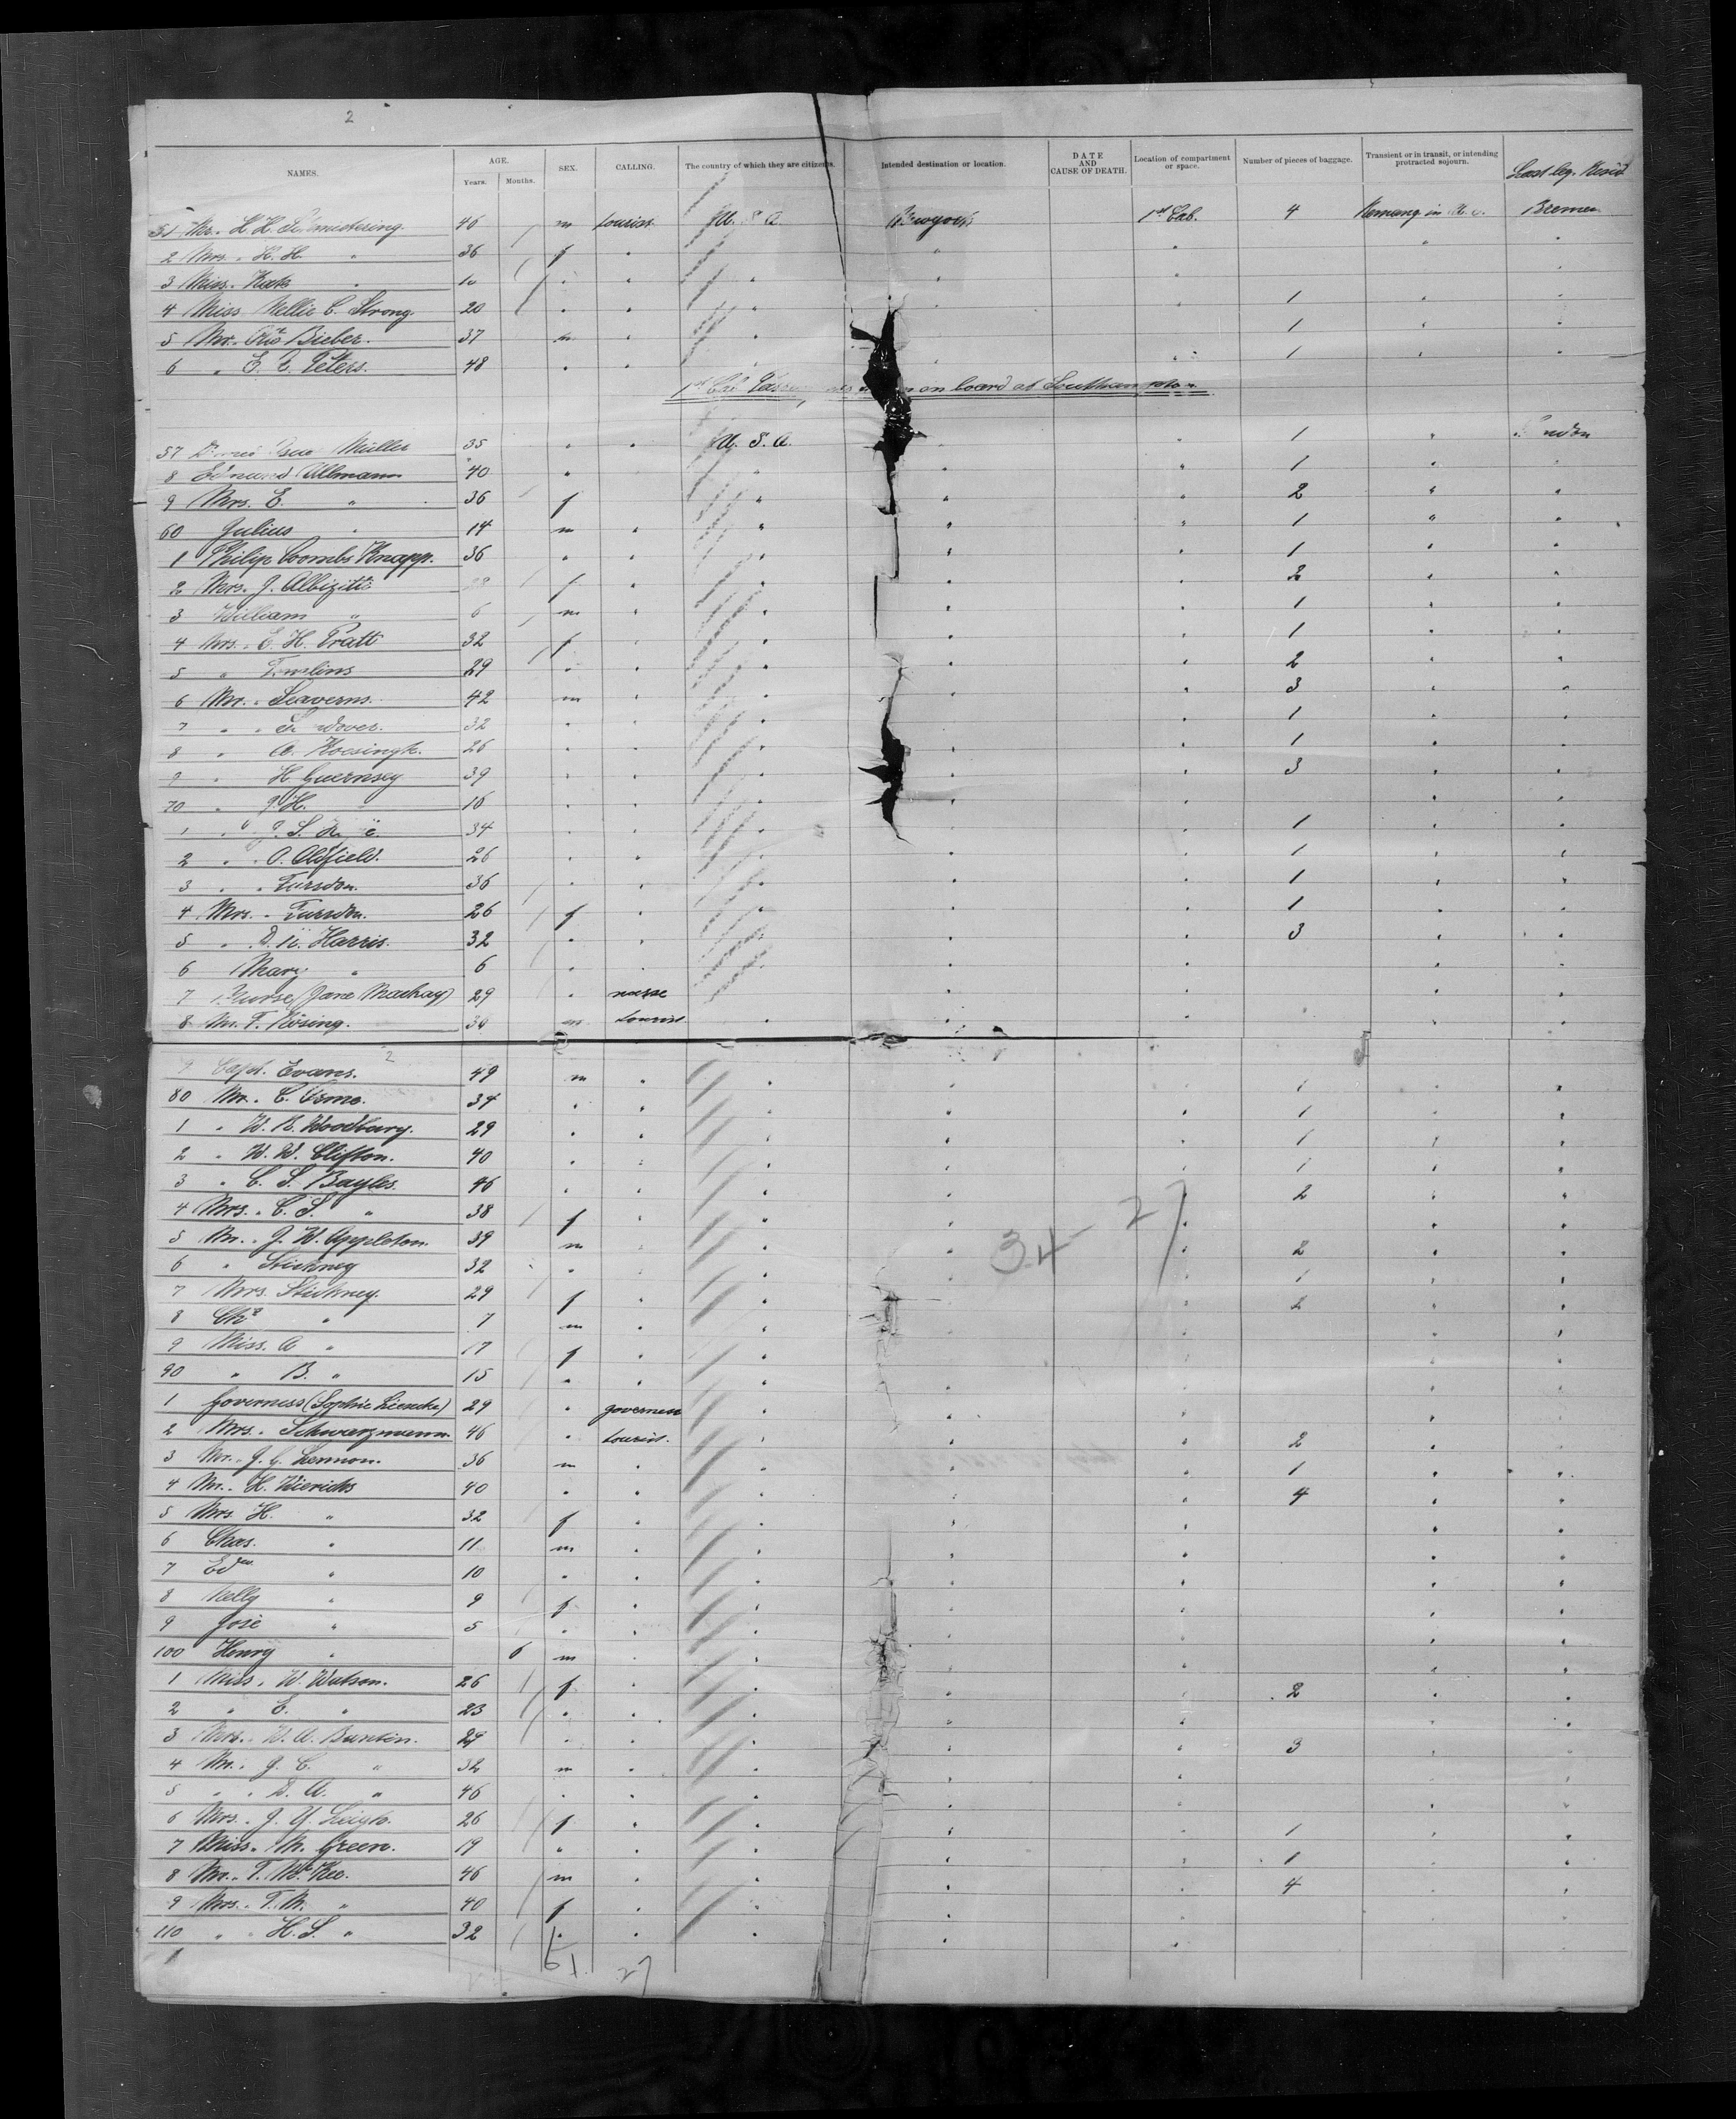 2
NAMES. AGE. Years. Months. SEX. CALLING. The country of which they are citizens. Intended destination or location. DATE AND CAUSE OF DEATH. Location of compartment or space. Number of pieces of baggage. Transient or in transit, or intending protracted sojourn. Last leg. Resid
51 Mr. H. H. 46 m tourist U. S. A. Newyork 1st Cab. 4 in Bremen
2 Mrs. H. H. " 36 f " " " "
3 Miss. " 10 " " " " " "
4 Miss Nellie C. Strong. 20 " " " " " 1 " "
5 Mr. Otto Bieber. 37 m " " 1 " "
6 " E. Peters. 48 " " " " " 1 " "
1st Cab. on board at Southampton
57 Müller 35 " " U. S. A. " " 1 "
8 Edmund Allmann 40 " " " " 1 " "
9 Mrs. E. " 36 f " " " 2 " "
60 Julius " 14 m " " " " 1 " "
1 Philip Coombs Knapp. 36 " " " " " 1 " "
2 Mrs. J. Albiziti f " " " " 2 " "
3 William " 6 m " " " " 1 " "
4 Mrs. E. H. Pratt 32 f " " " " 1 " "
5 " 29 " " " " " 2 " "
6 Mr. Seaverns. 42 m " " " " 3 " "
7 " 32 " " " " " 1 " "
8 " A. Hoesingh. 26 " " " " " 1 " "
9 " H. Guernsey 39 " " " " " 3 " "
70 " J. H. " 16 " " " " " " "
1 " 34 " " " " " 1 " "
2 " O. Oldfield. 26 " " " " " 1 " "
3 " Tursdon. 36 " " " " " 1 " "
4 Mrs. Tursdon. 26 f " " " " 1 " "
5 " Harris. 32 " " " " " 3 " "
6 Mary " 6 " " " " " " "
7 Nurse (Jane Mackay) 29 " nurse " " " "
8 Mr. F. Rösing. 36 m tourist " " " " "
2
9 Capt. Evans. 49 m " " " 1 " "
80 Mr. C. Orme. 34 " " " " " 1 " "
1 " W. R. Woodbury. 29 " " " " " 1 " "
2 " W. W. Clifton. 40 " " " " " 1 " "
3 " C. S. Bayles. 46 " " " " " 2 " "
4 Mrs. C. S. " 38 f " " " " " "
5 Mr. J. W. Appleton. 39 m " " " " 2 " "
6 " Stickney 32 " " " " " 1 " "
7 Mrs. Stickney. 29 f " " " " 2 " "
8 " 7 m " " " " " "
9 Miss. A " 17 f " " " " " "
90 " B. " 15 " " " " " " "
1 Governess (Sophie ) 29 " governess " " " " "
2 Mrs. Schwarzmann. 46 " tourist. " " " 2 " "
3 Mr. J. G. Lennon. 36 m " " " " 1 " "
4 Mr. H. Wierichs 40 " " " " " 4 " "
5 Mrs. H. " 32 f " " " " " "
6 Chas. " 11 m " " " " " "
7 Edw " 10 " " " " " " "
8 Nelly " 9 f " " " " " "
9 José " 5 " " " " " " "
100 Henry " 6 m " " " " "
1 Miss. W. Watson. 26 f " " " " 2 " "
2 " E. " 23 " " " " " " "
3 Mrs. W. A. Buntin. 29 " " " " " 3 " "
4 Mr. J. C. " 32 m " " " "
5 " D. A. " 46 " " " " " " "
6 Mrs. J. Y. Leigh. 26 f " " " " 1 " "
7 Miss. M. Green. 19 " " " " " 1 " "
8 Mr. T. McKee. 46 m " " " " 4 " "
9 Mrs. T. M. " 40 f " " " " " "
110 " H. S. " 32 " " " " "
34 - 27
27